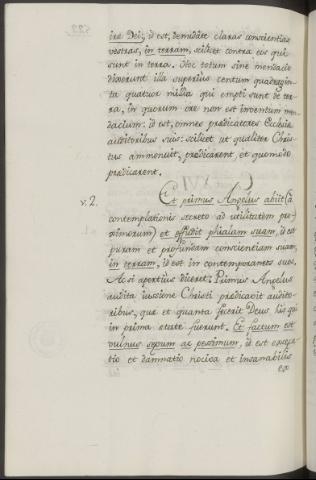 iræ Dei, id est, denudate claras conscientias
vestras, in terram, scilicet contra eos qui
sunt in terra. Hoc totum sine mendacio
dixerunt illa superius centum quadragin-
ta quatuor millia qui empti sunt de ter-
ra, in quorum ore non est inventum men-
dacium: id est, omnes prædicatores Ecclesiæ
auditoribus suis: scilicet ut qualiter Chris-
tus ammonuit, prædicarent, et quomodo
prædicarent.
v. 2. Et primus Angelus abiit (à
contemplationis secreto ad utilitatem pro-
ximorum) et effudit phialam suam, id est
puram et profundam conscientiam suam,
in terram, id est in contemporaneos suos.
Ac si apertius diceret: Primus Angelus
audita iussione Christi prædicavit audito-
ribus, quæ et quanta fecerit Deus his qui
in prima etate fuerunt. Et factum est
vulnus sævum ac pessimum, id est
tio et damnatio nociva et insanabilis
ex